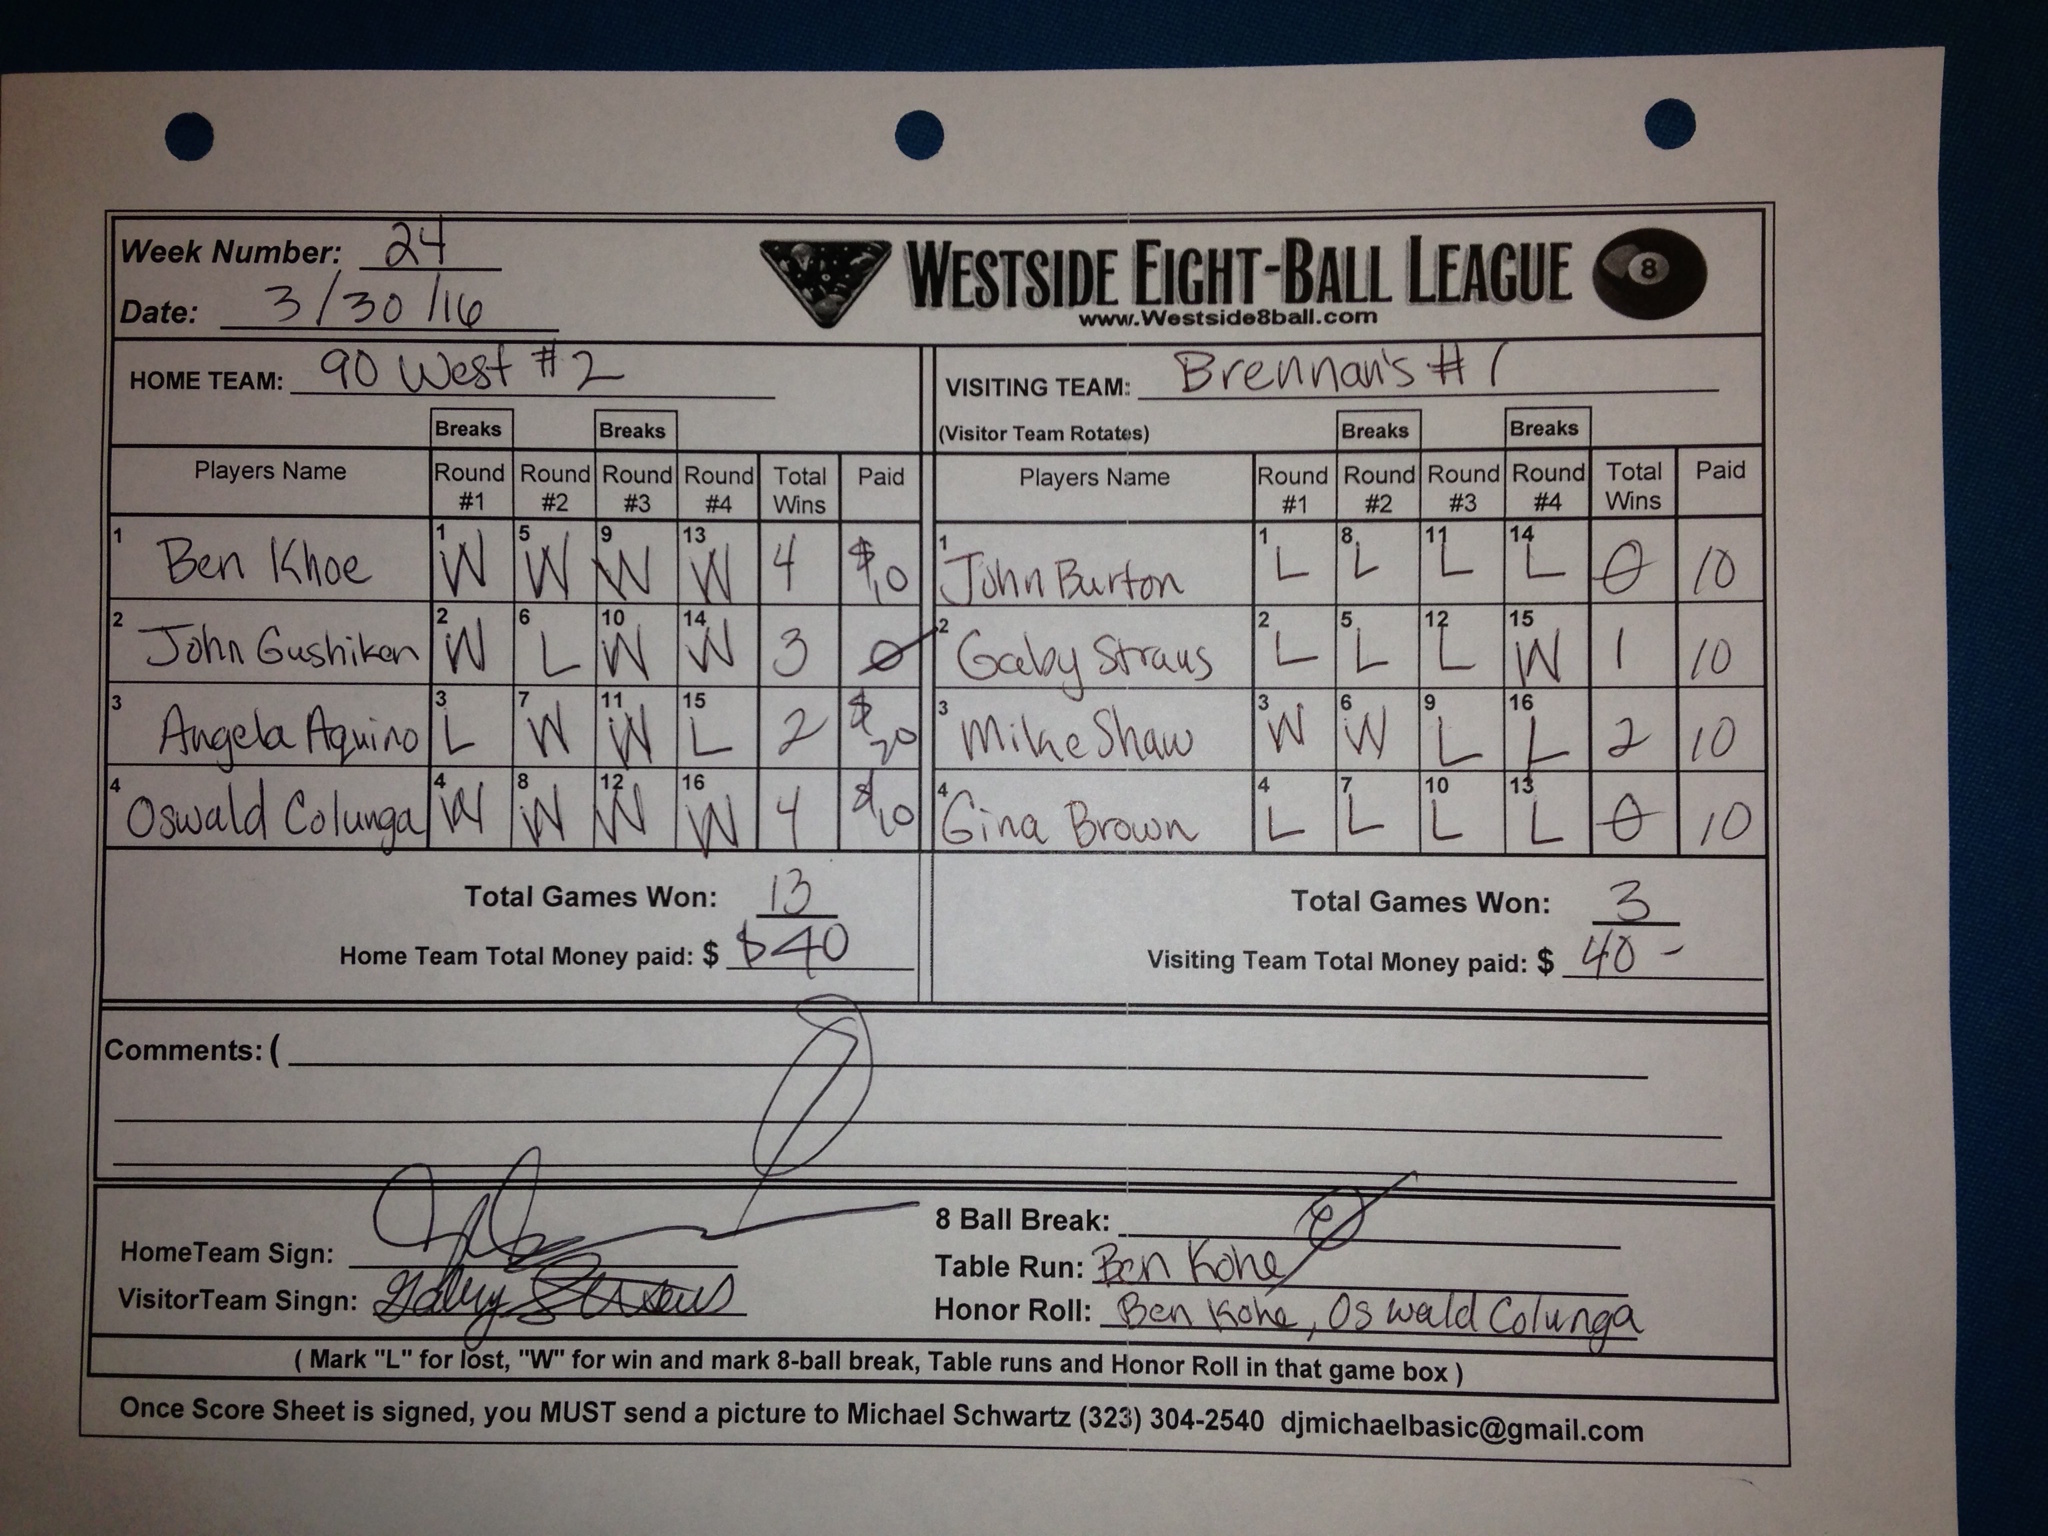 Week Number: 24
WESTSIDE EIGHT-BALL LEAGUE 8
Date: 3/30/16
www.Westside8ball.com
HOME TEAM: 90 West #2
VISITING TEAM: Brennan's #1
Breaks Breaks
(Visitor Team Rotates) Breaks Breaks
Players Name Round #1 Round #2 Round #3 Round #4 Total Wins Paid
Players Name Round #1 Round #2 Round #3 Round #4 Total Wins Paid
1 Ben Khoe 1 W 5 W 9 W 13 W 4 $10
1 John Burton 1 L 8 L 11 L 14 L 0 10
2 John Gushiken 2 W 6 L 10 W 14 W 3 0
2 Gaby Straus 2 L 5 L 12 L 15 W 1 10
3 Angela Aquino 3 L 7 W 11 W 15 L 2 $20
3 Mike Shaw 3 W 6 W 9 L 16 L 2 10
4 Oswald Colunga 4 W 8 W 12 W 16 W 4 $10
4 Gina Brown 4 L 7 L 10 L 13 L 0 10
Total Games Won: 13
Total Games Won: 3
Home Team Total Money paid: $ $40
Visiting Team Total Money paid: $ 40 -
Comments: (
HomeTeam Sign:
VisitorTeam Singn: Gaby Straus
8 Ball Break:
Table Run: Ben Kohe
Honor Roll: Ben Kohe, Oswald Colunga
( Mark "L" for lost, "W" for win and mark 8-ball break, Table runs and Honor Roll in that game box )
Once Score Sheet is signed, you MUST send a picture to Michael Schwartz (323) 304-2540 djmichaelbasic@gmail.com